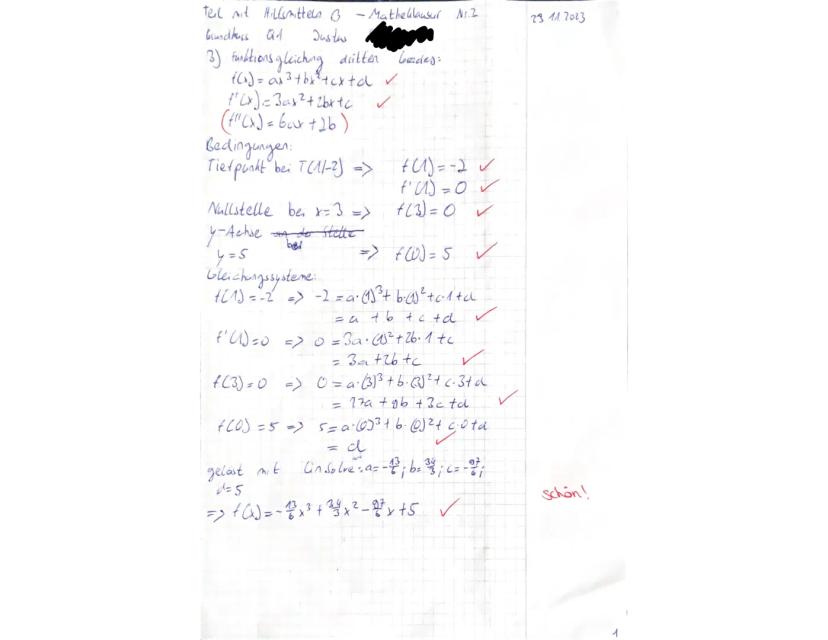 Teil mit Hilfsmitteln B - Matheklausur Nr.2 29.11.2023
Grundkurs Q1 Justus
3) Funktionsgleichung dritten Grades:
f(x) = ax³+bx²+cx+d ✓
f'(x) = 3ax²+2bx+c ✓
(f''(x) = 6ax+2b)
Bedingungen:
Tiefpunkt bei T(1/-2) => f(1)=-2 ✓
f'(1) = 0 ✓
Nullstelle bei x=3 => f(3)=0 ✓
y-Achse an der Stelle
bei
y=5 => f(0)=5 ✓
Gleichungssysteme:
f(1)=-2 => -2 = a·(1)³+b·(1)²+c·1+d
= a + b + c + d ✓
f'(1)=0 => 0 = 3a·(1)²+2b·1+c
= 3a+2b+c ✓
f(3)=0 => 0 = a·(3)³+b·(3)²+c·3+d
= 27a+9b+3c+d ✓
f(0)=5 => 5=a·(0)³+b·(0)²+c·0+d
= d ✓
gelöst mit LinSolve: a=-13/6; b=34/3; c=-97/6;
d=5 schön!
=> f(x)=-13/6x³+34/3x²-97/6x+5 ✓
1